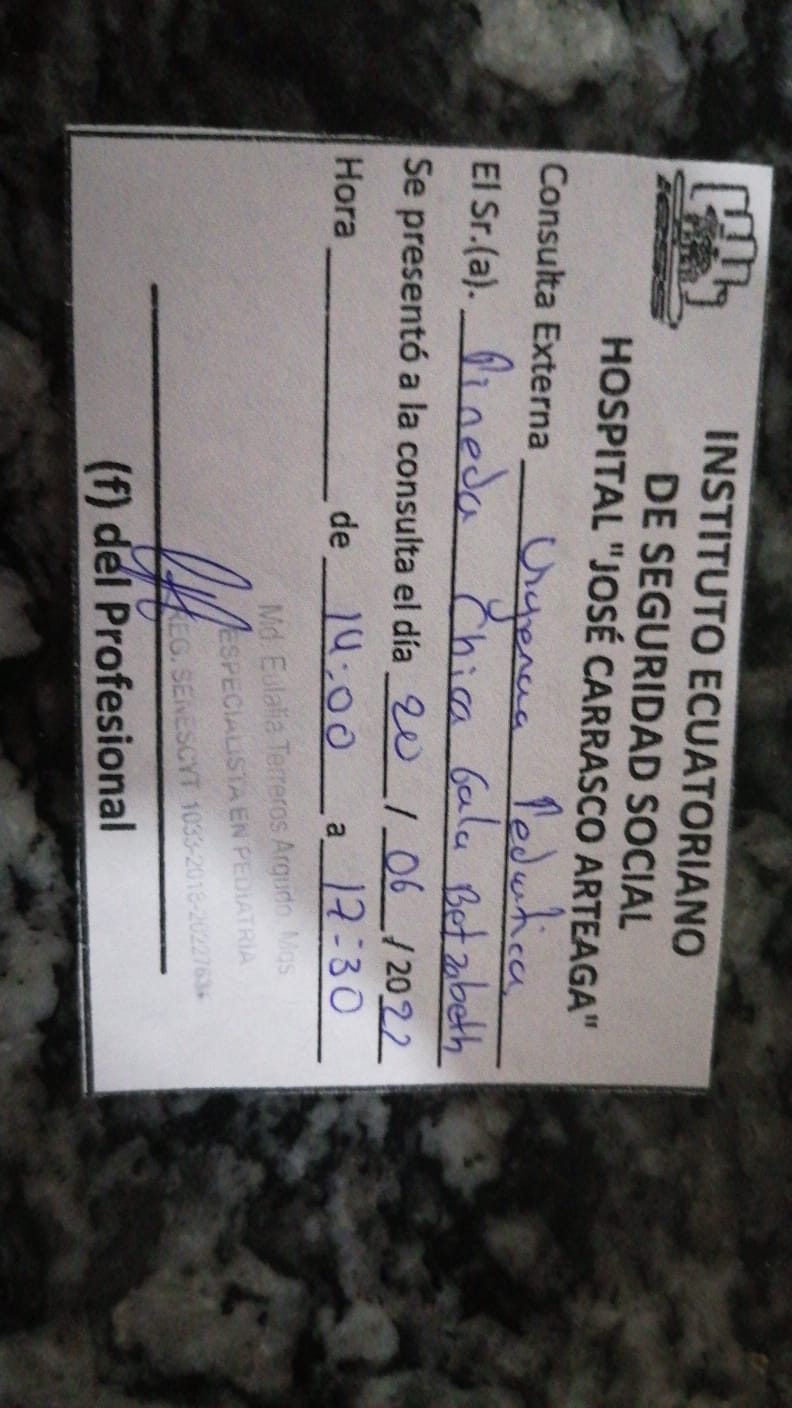 IESS
INSTITUTO ECUATORIANO
DE SEGURIDAD SOCIAL
HOSPITAL "JOSÉ CARRASCO ARTEAGA"
Consulta Externa Urgencia Pediatrica
El Sr.(a). Pineda Chica Gala Betzabeth
Se presentó a la consulta el día 20 / 06 / 2022
Hora de 14:00 a 17:30
Md. Eulalia Terreros Argudo. Mgs
ESPECIALISTA EN PEDIATRIA
REG. SENESCYT
(f) del Profesional